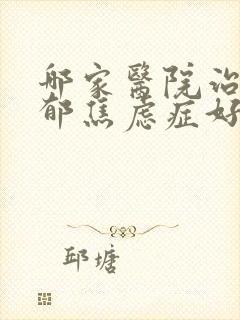 哪家醫院治
郁焦虑症好
邱塘